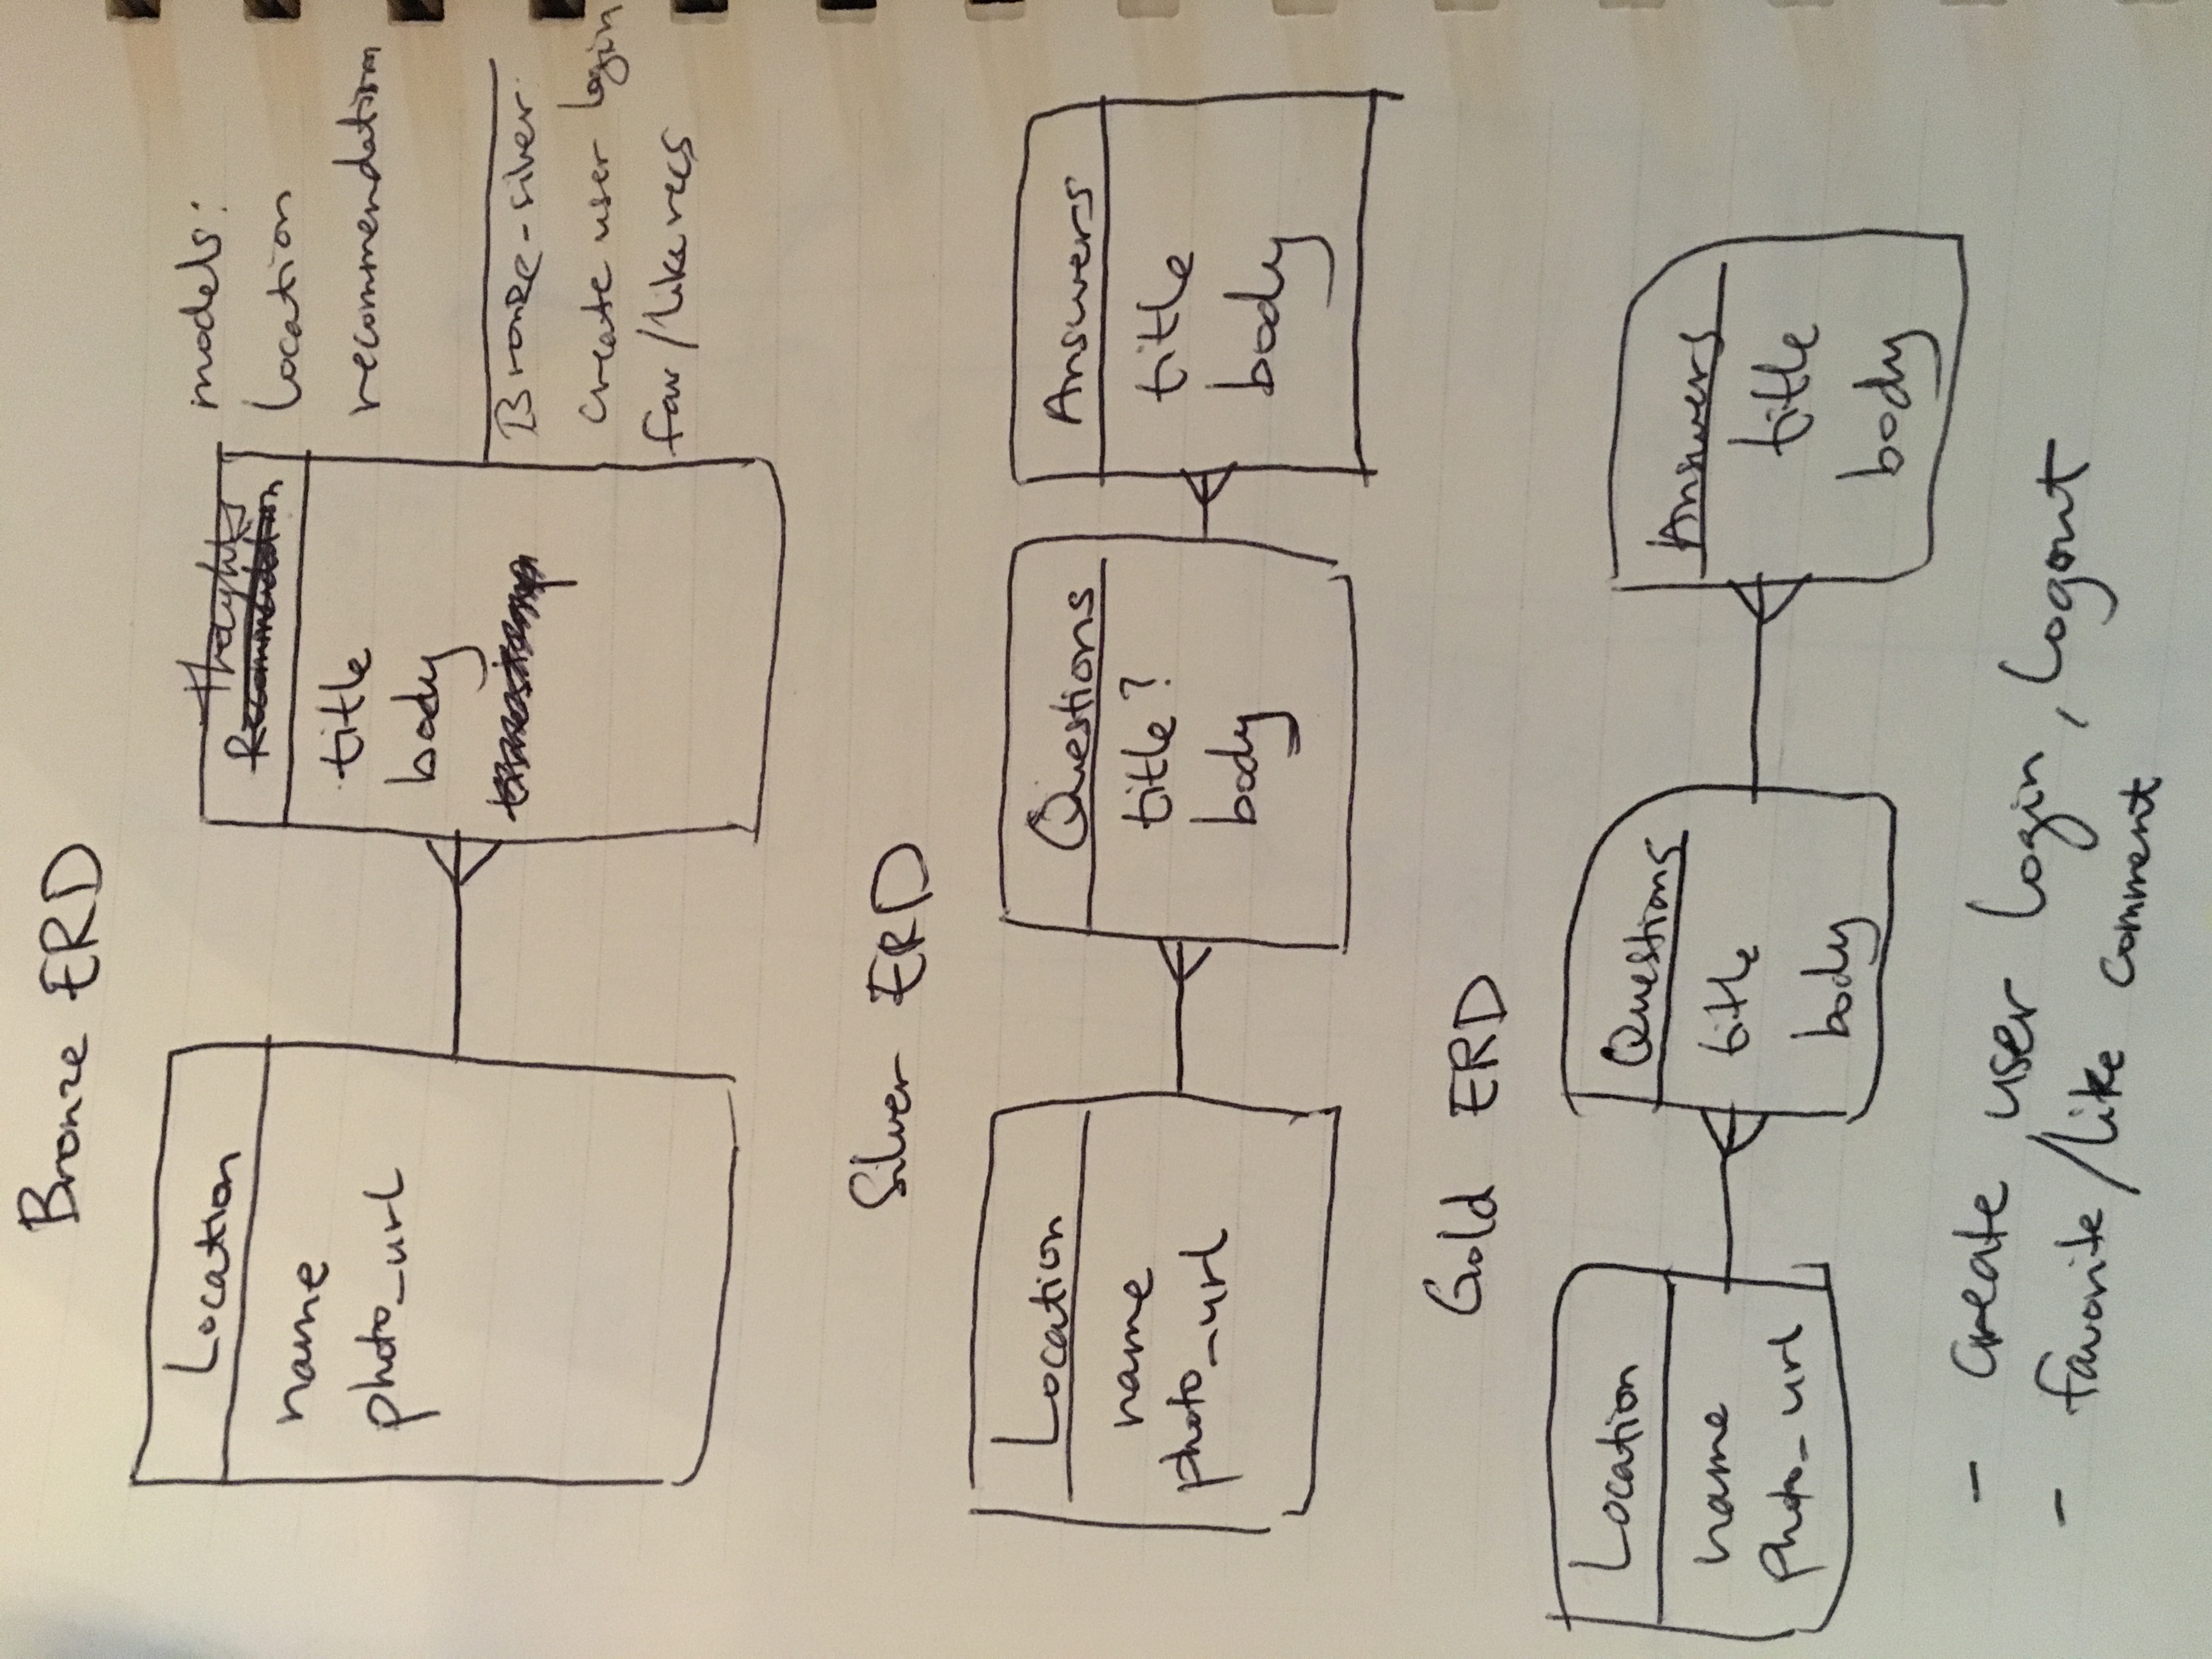 Bronze ERD
Location
name
photo_url
Thoughts
Recommendation
title
body
timestamp
models:
location
recommendation
Bronze-silver:
create user login
fav/like recs
Silver ERD
Location
name
photo_url
Questions
title?
body
Answers
title
body
Gold ERD
Location
name
photo_url
Questions
title
body
Answers
title
body
- create user login, logout
- favorite/like comment